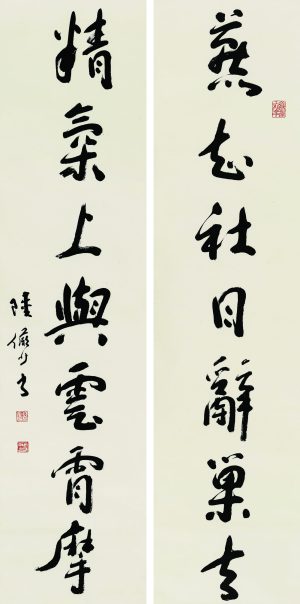 燕知社日辭巢去
精氣上與雲霄摩
陸儼少書